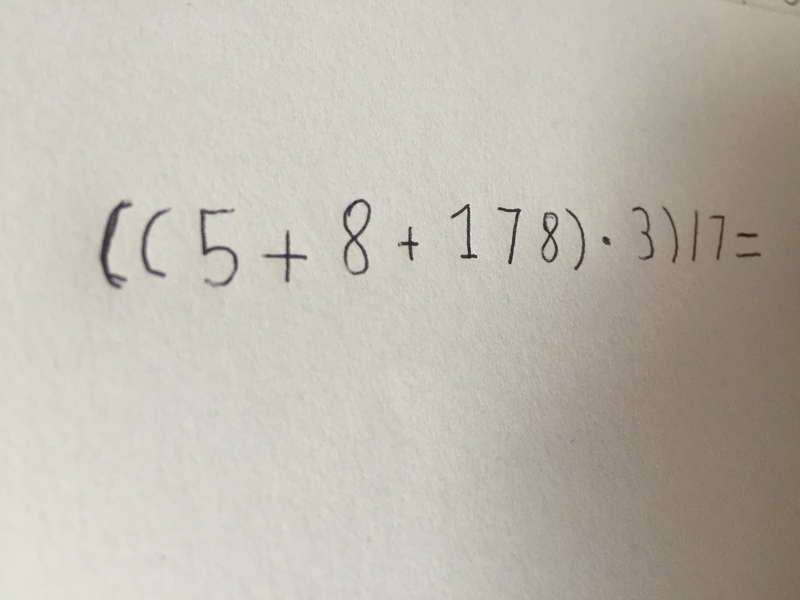 ((5+8+178)·3)/7=